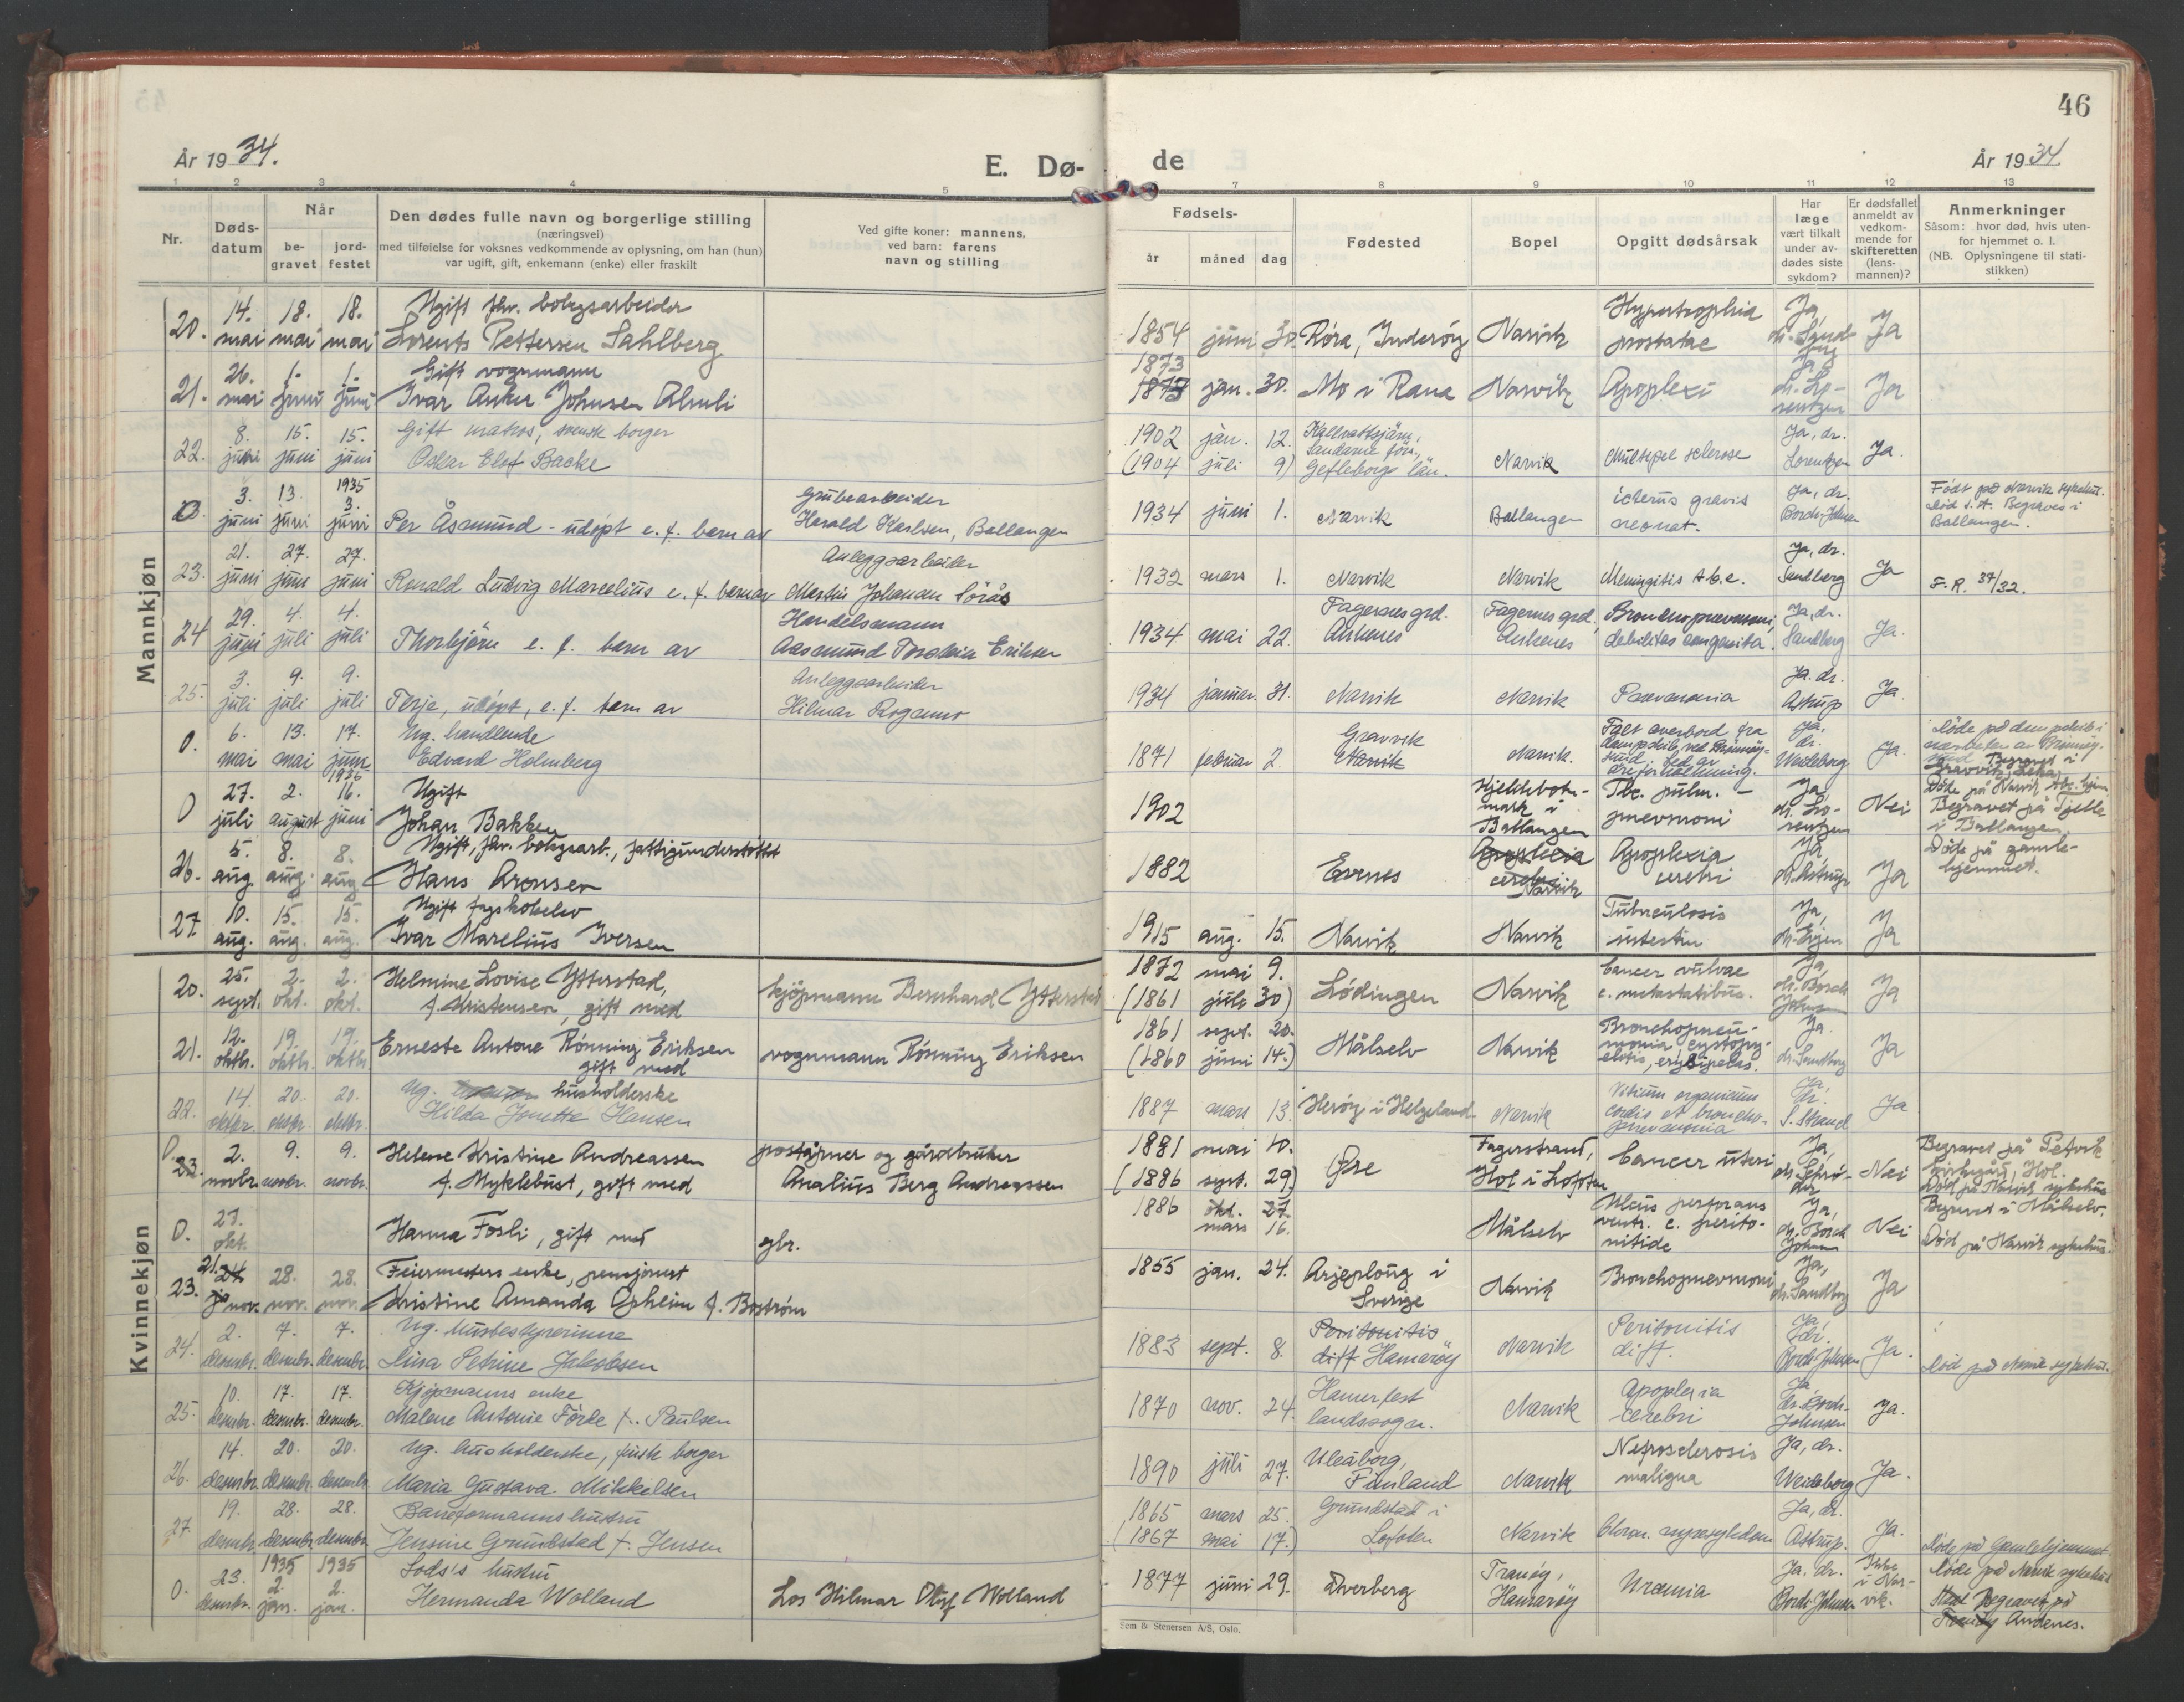 46
År 1934.
E. Dø-
de
År 1934
1 2 3 4 5
7 8 9 10 11 12 13
Nr.
Døds-
datum
Når
be-
gravet
jord-
festet
Den dødes fulle navn og borgerlige stilling
(næringsvei)
med tilføielse for voksnes vedkommende av oplysning, om han (hun)
var ugift, gift, enkemann (enke) eller fraskilt
Ved gifte koner: mannens,
ved barn: farens
navn og stilling
Fødsels-
år måned dag
Fødested
Bopel
Opgitt dødsårsak
Har
læge
vært tilkalt
under av-
dødes siste
sykdom?
Er dødsfallet
anmeldt av
vedkom-
mende for
skifteretten
(lens-
mannen)?
Anmerkninger
Såsom: hvor død, hvis uten-
for hjemmet o. l.
(NB. Oplysningene til stati-
stikken)
Mannkjøn
20. 14. mai 18. mai 18. mai
Ugift fhv. bolagsarbeider
Lorents Pettersen Sahlberg
1854 juni 30. Røra, Inderøy Narvik
Hypertrophia
prostatae
Ja,
dr. Sand-
berg
Ja
21. 26. mai 1. juni 1. juni
Gift vognmann
Ivar Anker Johnsen
1873
jan. 30. Mo i Rana Narvik Apoplexi
Ja
dr. Lo-
rentzen
Ja
22. 8. juni 15. juni 15. juni
Gift matros, svensk borger
Oskar Elof Backe
1902 jan. 12.
(1904 juli 9) Gefleborgs län.
Narvik Multipel sclerose
Ja, dr.
Lorentzen
Ja.
3. juni 13. juni 1935 3. juni
Per Åsmund - udøpt e. f. barn av
Grubearbeider
Harald Karlsen, Ballangen
1934 juni 1. Narvik Ballangen
icterus gravis
neonat.
Ja, dr.
Borch-Johnsen
Født på Narvik sykehus.
død s. st. Begraves i
Ballangen.
23. 21. juni 27. juni 27. juni
Ronald Ludvig Marcelius e. f. barn av
Anleggsarbeider
Martin Johanan Sörås
1932 mars 1. Narvik Narvik Meningitis tbc.
Ja, dr.
Sandberg
Ja
F. R. 37/32.
24 29. juni 4. juli 4. juli
Thorbjörn e. f. barn av
Handelsmann
Aasmund Eriksen
1934 mai 22.
Fagernes grd.
Ankenes
Fagernes grd.,
Ankenes
debilitas congenita.
Ja, dr.
Sandberg
Ja.
25. 3. juli 9. juli 9. juli
Terje, udöpt, e. f. barn av
Anleggsarbeider
Hilmar Rogamo
1934 januar. 31. Narvik Narvik Pnevmonia
Ja. dr.
Astrup
Ja.
0. 6. mai 13. mai 17. juni
Ug. handlende
Edvard Holmberg
1871 februar 2.
Gravvik
Narvik
Narvik.
Falt overbord fra
Ja,
dr.
Weideborg
Ja.
0 27. juli 2. august 1936 16. juni
Ugift
Johan Bakken
1902
mark i
Ballangen
Tbc. pulm. -
pnevmoni
Ja,
dr. Lo-
rentzen
Nei
Begravet på
i Ballangen.
26. 5. aug. 8. aug. 8. aug
Ugift, fhv. bolagsarb., fattigunderstöttet
Hans Aronsen
1882 Evenes
Apoplexia
cerebri
Narvik
Apoplexia
cerebri
Ja
dr. Astrup
Ja
Døde på gamle-
hjemmet.
27. 10. aug. 15. aug. 15. aug.
Ugift fagskoleelev
Ivar Marelius Iversen
1915 aug. 15. Narvik Narvik
Tuberculosis
intestin
Ja,
Ja
Kvinnekjøn
20. 25. sept. 2. okt. 2. okt.
Helmine Lovise Ytterstad,
f. Kristensen, gift med
kjöpmann Bernhard Ytterstad
1872 mai 9.
(1861 juli 30)
Lödingen Narvik
Cancer vulvae
c. metastatibus.
Ja,
dr. Borch
Johnsen
Ja
21. 12. oktbr. 19. oktbr. 19. oktbr
Erneste Antone Rönning Eriksen
gift med
vognmann Rönning Eriksen
1861 sept. 20.
(1860 juni 14.)
Målselv Narvik
Bronchopneu-
monia, cystopy-
elitis, erysipelas.
Ja.
dr. Sandberg
Ja
22. 14. oktbr. 20. oktbr. 20. oktbr.
Ug. husholderske
Hilda Jonette Hansen
1887 mars 13. Heröy i Helgeland Narvik
Vitium organicum
cordis et broncho-
pnevmonia
Ja,
dr.
S. Strand
Ja
0. 23. 2. novbr. 9. novbr. 9. novbr.
Helene Kristine Andreassen
f. Myklebust, gift med
poståpner og gårdbruker
Analius Berg Andreassen
1881 mai 10.
(1886 sept. 29.)
Fagerstrand,
Hol i Lofoten
Cancer uteri
Ja,
Nei
Begravet på Petvik
kirkegård, Hol.
Død på Narvik sykehus
0. 27. okt.
Hanna Fosli, gift med
gbr.
1886 okt. 27.
mars 16.
Målselv
Ulcus perforans
ventr. c. perito-
nitide
Ja,
dr. Borch
Johnsen
Nei
Begravet i Målselv.
Död på Narvik sykehus.
23. 21. nov. 28. nov. 28. nov.
Feiermesters enke, pensjonert
Kristine Amanda Opheim f. Boström
1855 jan. 24.
Arjeploug i
Sverige
Narvik Bronchopnevmoni
Ja,
dr. Sandberg
Ja
24. 2. desembr. 7. desembr. 7. desembr.
Ug. husbestyrerinne
Lina Petrine Jakobsen
1883 sept. 8.
Peritonitis
diff. Hamarøy
Narvik
Peritonitis
diff.
Ja,
dr.
Borch-Johnsen
Ja.
død på Narvik sykehus.
25. 10. desembr. 17. desembr. 17. desembr.
Kjöpmanns enke
Malene Antonie Förde f. Paulsen
1870 nov. 24.
Hamerfest
landssogn.
Narvik
Apoplexia
cerebri
Ja,
dr. Borch-
Johnsen
Ja.
26. 14. desembr. 20. desembr. 20. desembr.
Ug. husholderske, finsk borger
Maria Gustava Mikkelsen
1890 juli 27.
Uleåborg,
Finland
Narvik
Nefrosclerosis
maligna
Ja, dr.
Weideborg
Ja.
27. 19. desembr. 28. desembr. 28. desembr.
Baneformanns hustru
Jensine Grundstad f. Jensen
1865 mars 25.
(1867 mai 17.)
Grundstad i
Lofoten
Narvik
Ja, dr.
Astrup.
Ja.
døde på Gamlehjemmet.
0. 23. desembr. 1935 2. jan. 1935 2. jan.
Lods's hustru
Hermanda Wolland
Los Hilmar Olaf Wolland
1877 juni 29. Dverberg
Tranöy,
Hamaröy
Uræmia
Ja. dr.
Borch-Johnsen
Ikke
i Nar-
vik.
døde på Narvik sykehus
Begravet på
Andenes.
Sem & Stenersen A/S, Oslo.